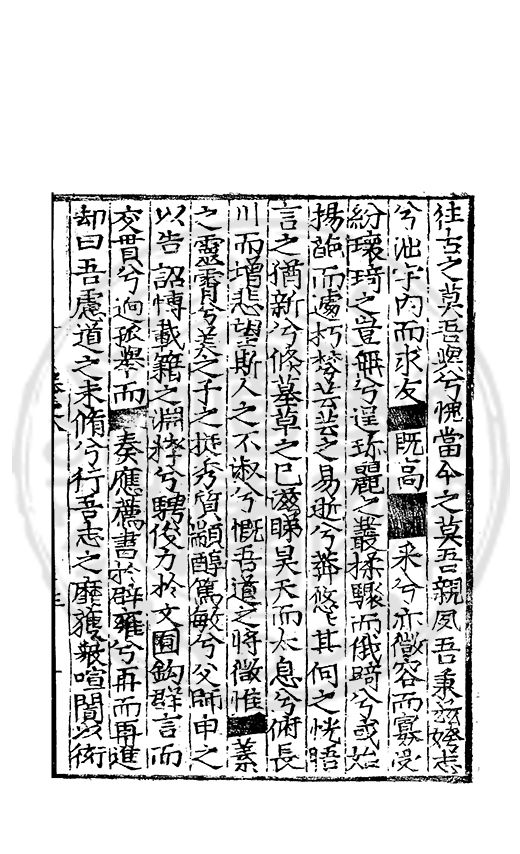 往古之莫吾與兮愧當今之莫吾親夙吾秉茲姱志
兮沘宇内而求友既高釆兮亦微容而寡受
紛環琦之豈無兮逞琭麗之叢揉驟而俄踦兮或始
揚而遽朽榜芸芸之易逝兮莽悠之其何之恍晤
言之猶新兮倏墓草之已滋睇昊天而太息兮俯長
川而增悲望斯人之不淑兮慨吾道之將微惟蓁
之靈胥兮差之子之挺秀質顓醇篤敏兮父師申之
以告詔博載籍之淵粹兮騁俊力於文囿鈎群言而
交貫兮逈孤舉而奏應薦書於群雍兮再而再進
却曰吾慮道之未脩兮行吾志之靡獲厭喧闐以衒